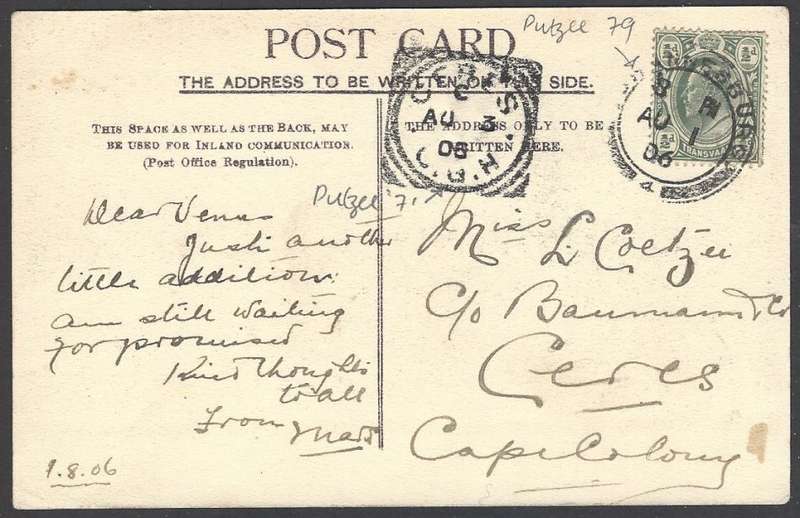 POST CARD
THE ADDRESS TO BE WRITTEN ON THIS SIDE.
Putzel 79
THIS SPACE AS WELL AS THE BACK, MAY
BE USED FOR INLAND COMMUNICATION.
(Post Office Regulation).
THE ADDRESS ONLY TO BE
WRITTEN HERE.
CERES
C
AU 3
06
C.G.H
8 PM
AU 1
06
TRANSVAAL
Putzel 71
Dear Venus
Just another
little addition.
am still waiting
for promised
Kind thoughts
to all
From
1.8.06
Miss L Coetzee
c/o Baumann & Co
Ceres
Cape Colony